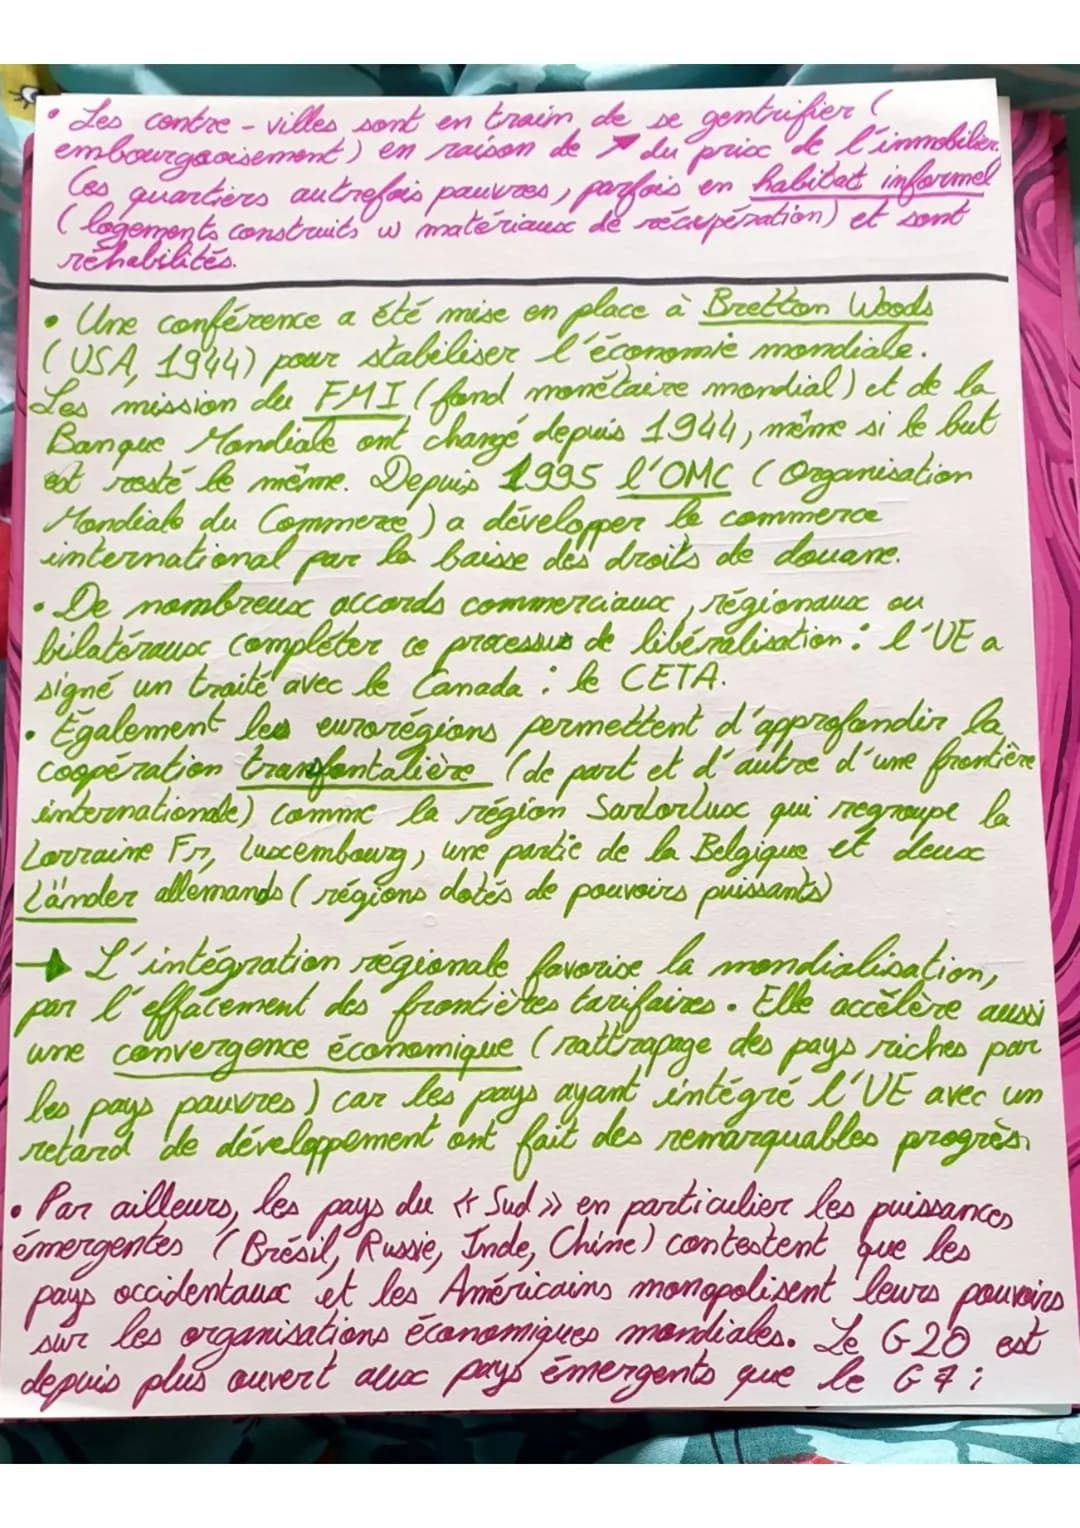 • Les contre-villes sont en train de se gentrifier (
embourgaoisement) en raison de ↗ du prix de l'immobilier.
Ces quartiers autrefois pauvres, parfois en habitat informel
(logements construits w matériaux de récupération) et sont
réhabilités.
• Une conférence a été mise en place à Bretton Woods
(USA, 1944) pour stabiliser l'économie mondiale.
Les mission du FMI (fond monétaire mondial) et de la
Banque Mondiale ont changé depuis 1944, même si le but
est resté le même. Depuis 1995 l'OMC (Organisation
Mondiale du Commerce) a développer le commerce
international par la baisse des droits de douane.
• De nombreux accords commerciaux, régionaux ou
bilatéraux compléter ce processus de libéralisation : l'UE a
signé un traité avec le Canada : le CETA.
• Également les eurorégions permettent d'approfondir la
coopération transfontalière (de part et d'autre d'une frontière
internationale) comme la région Sarlorlux qui regroupe la
Lorraine Fr, Luxembourg, une partie de la Belgique et deux
Länder allemands (régions dotés de pouvoirs puissants)
→ L'intégration régionale favorise la mondialisation,
par l'effacement des frontières tarifaires. Elle accèlère aussi
une convergence économique (rattrapage des pays riches par
les pays pauvres) car les pays ayant intégré l'UE avec un
retard de développement ont fait des remarquables progrès.
• Par ailleurs, les pays du « Sud » en particulier les puissances
émergentes (Brésil, Russie, Inde, Chine) contestent que les
pays occidentaux et les Américains monopolisent leurs pouvoirs
sur les organisations économiques mondiales. Le G20 est
depuis plus ouvert aux pays émergents que le G7 ;